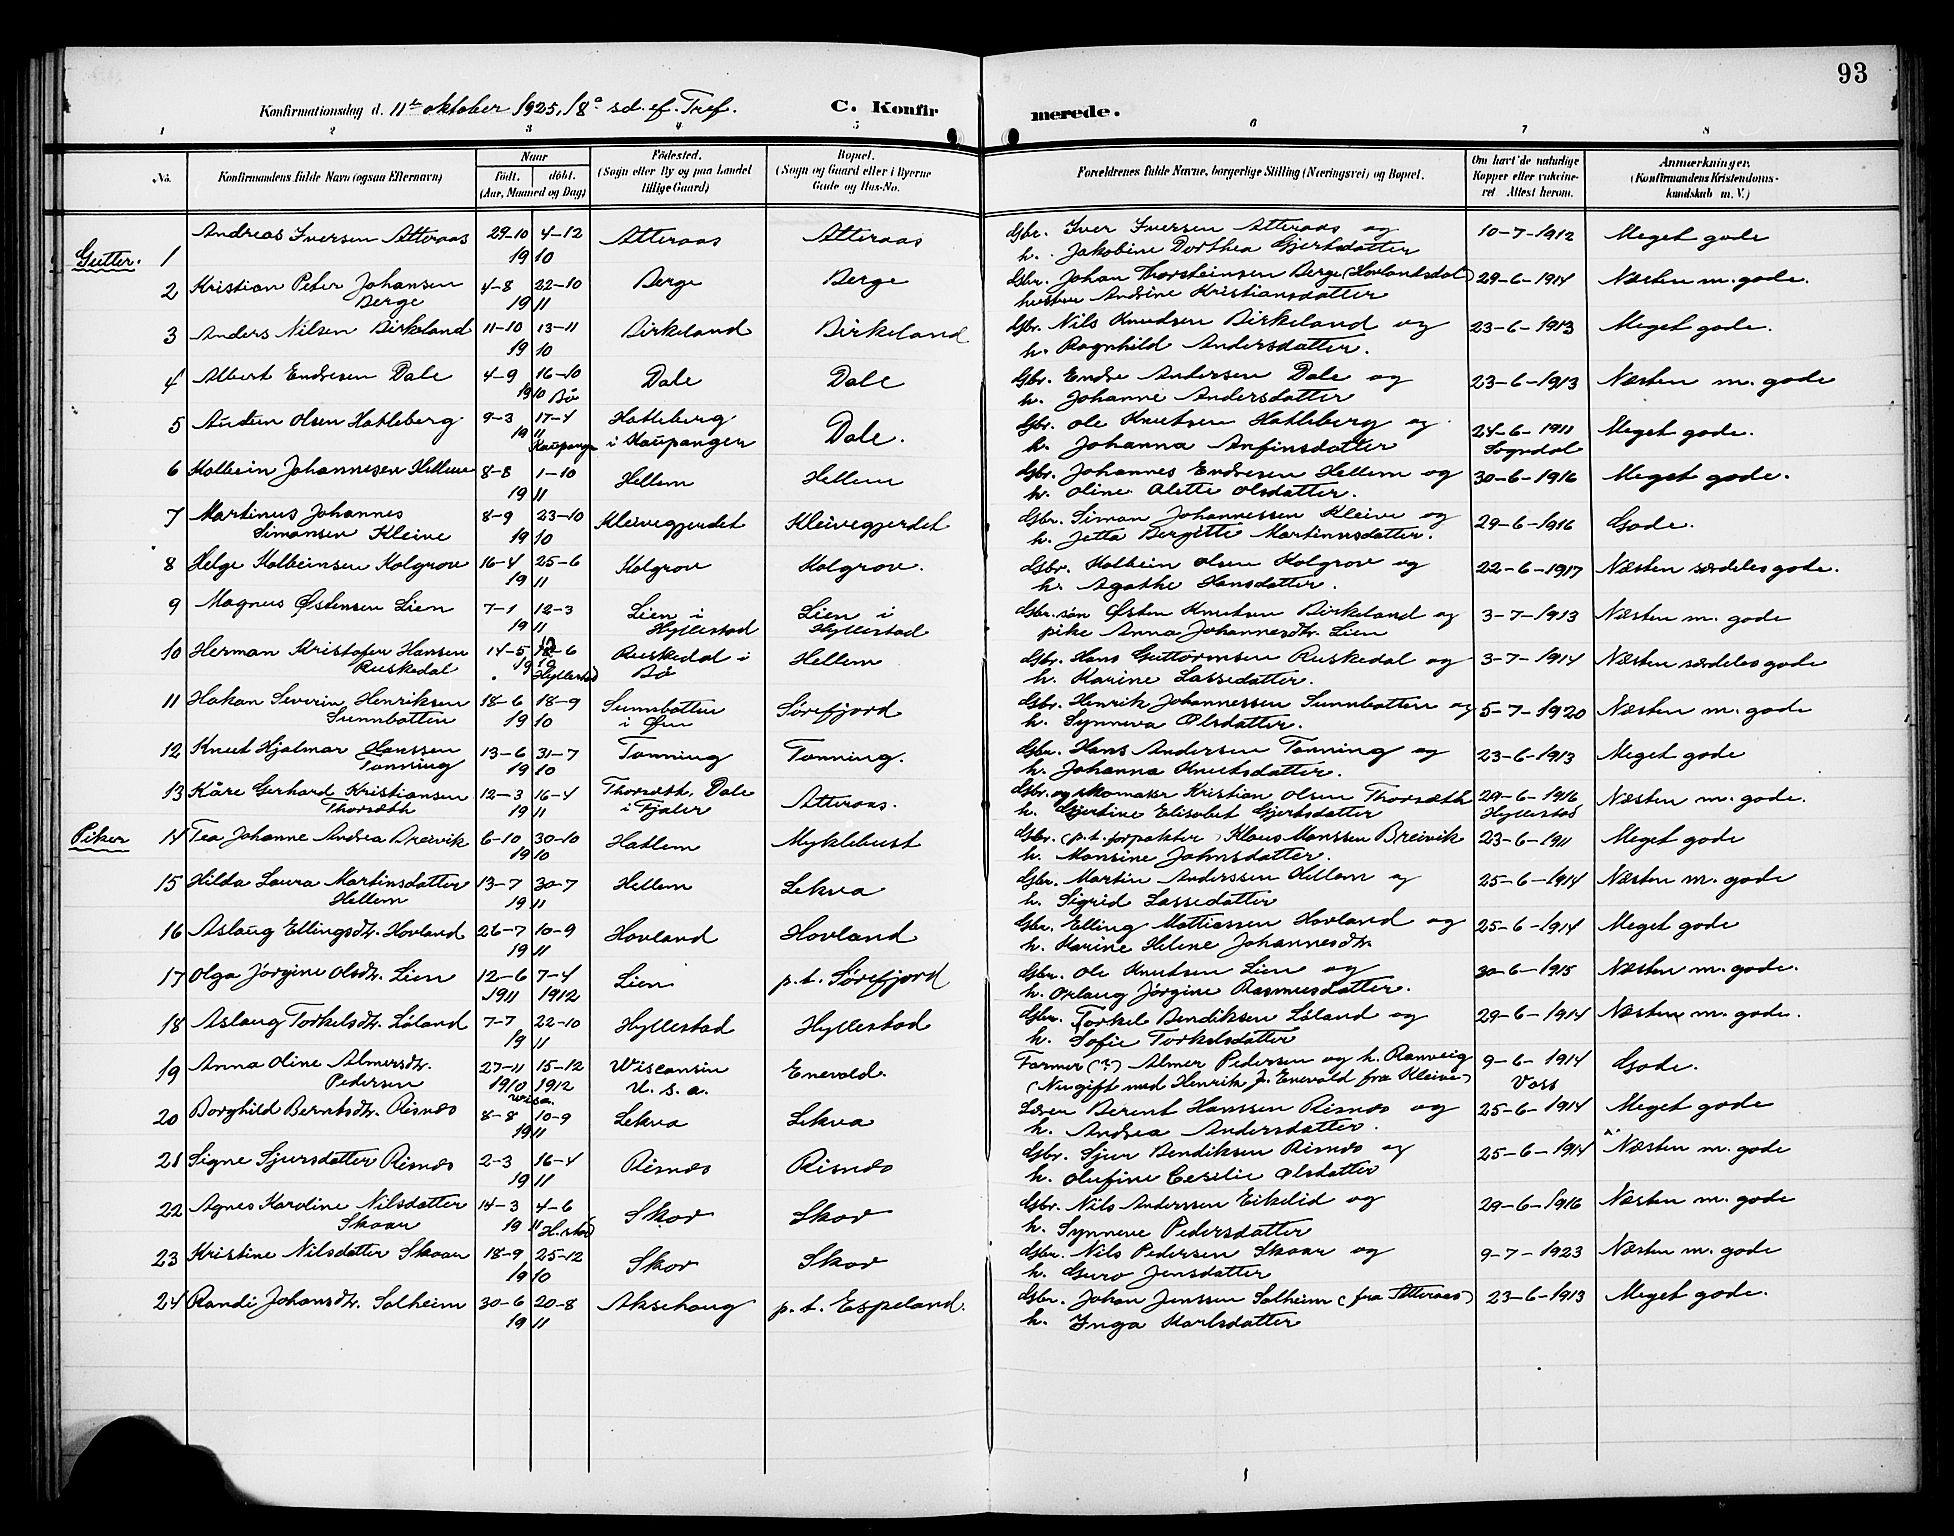 93
Konfirmationsdag d. 11te oktober 1925, 18de sd. ef. Tref. C. Konfirmerede.
1 2 3 4 5 6 7 8
No. Konfirmandens fulde Navn (ogsaa Efternavn) Naar født. døbt. (Aar, Maaned og Dag) Fødested. (Sogn eller By og paa Landet tillige Gaard) Bopæl. (Sogn og Gaard eller i Byerne Gade og Hus-No. Forældrenes fulde Navne, borgerlige Stilling (Næringsvei) og Bopæl. Om havt de naturlige Kopper eller vakcineret Attest herom. Anmærkninger. (Konfirmandens Kristendomskundskab m. V.)
Gutter. 1 Andreas Iversen Atteraas 29-10 4-12 1910 Atteraas Atteraas Gbr. Iver Iversen Atteraas og h. Jakobine Dorthea Gjertsdatter 10-7-1912 Meget gode
2 Kristian Peter Johansen Berge 4-8 22-10 1911 Berge Berge Gbr. Johan Thorsteinsen Berge (Hovlandsdal) hustru Andrine Kristiansdatter 29-6-1914 Næsten m. gode.
3 Anders Nilsen Birkeland 11-10 13-11 1910 Birkeland Birkeland Gbr. Nils Knudsen Birkeland og h. Ragnhild Andersdatter. 23-6-1913 Meget gode.
4 Albert Endresen Dale 4-9 16-10 1910 Bø Dale Dale Gbr. Endre Andersen Dale og h. Johanne Andersdatter 23-6-1913 Næsten m. gode
5 Audun Olsen Hatleberg 9-3 17-4 1911 Kaupanger Hatleberg i Kaupanger Dale. Gbr. Ole Knutsen Hatleberg og h. Johanna Anfinsdatter 24-6-1911 Sogndal Meget gode.
6 Kolbein Johannesen Hellem 8-8 1-10 1911 Hellem Hellem Gbr. Johannes Endresen Hellem og h. Oline Olette Olsdatter. 30-6-1916 Meget gode.
7 Martinus Johannes Simonsen Kleive 8-9 23-10 1910 Kleivegjerdet Kleivegjerdet Gbr. Simon Johannessen Kleive og h. Jetta Bergitte Martinusdatter. 29-6-1916 Gode.
8 Helge Kolbeinsen Kolgrov 16-4 25-6 1911 Kolgrov Kolgrov. Gbr. Kolbein Olsen Kolgrov og h. Agathe Hansdatter. 22-6-1917 Næsten særdeles gode.
9 Magnus Østensen Lien 7-1 12-3 1911 Lien i Hyllestad Lien i Hyllestad Gbr. søn Østen Knutsen Birkeland og pike Anna Johannesdtr. Lien 3-7-1913 Næsten m. gode
10 Herman Kristofer Hansen Ruskedal 14-5 12-6 1910 Hyllestad Ruskedal i Bø Hellem Gbr. Hans Guttormsen Ruskedal og h. Karine Lassedatter. 3-7-1914 Næsten særdeles gode
11 Hakon Severin Henriksen Sunnbotten 18-6 18-9 1910 Sunnbotten i Øen Sørefjord Gbr. Henrik Johannessen Sunnbotten og h. Synneva Olsdatter. 5-7-1920 Næsten m. gode
12 Knut Hjalmar Hanssen Tonning 13-6 31-7 1910 Tonning Tonning. Gbr. Hans Andersen Tonning og h. Johanna Knutsdatter. 23-6-1913 Meget gode
13 Kåre Gerhard Kristiansen Thorsæth 12-3 16-4 1911 Thorsæth, Dale i Fjaler Atteraas. Gbr. og skomaker Kristian Olsen Thorsæth h. Gjertine Elisabet Gjertsdatter 29-6-1916 Hyllestad Næsten m. gode.
Piker 14 Tea Johanne Andrea Breivik 6-10 30-10 1910 Hatlem Myklebust Gbr. (p.t. forpakter) Klaus Monssen Breivik h. Monsine Johnsdatter. 23-6-1911 Meget gode
15 Hilda Laura Martinsdatter Hellem 13-7 30-7 1911 Hellem Lekva Gbr. Martin Anderssen Hellem og h. Sigrid Lassedatter 25-6-1914 Næsten m. gode
16 Aslaug Ellingsdtr. Hovland 26-7 10-9 1911 Hovland Hovland Gbr. Elling Mattiassen Hovland og h. Karine Helene Johannesdtr. 25-6-1914 Meget gode
17 Olga Jørgine Olsdtr. Lien 12-6 1911 7-4 1912 Lien p.t. Sørefjord Gbr. Ole Knutsen Lien og h. Orlaug Jørgine Rasmusdatter. 30-6-1915 Næsten m. gode.
18 Aslaug Torkelsdtr. Løland 7-7 22-10 1911 Hyllestad Hyllestad Gbr. Torkel Bendiksen Løland og h. Sofie Torkelsdatter 29-6-1914 Næsten m. gode.
19 Anna Oline Almersdtr. Pedersen 27-11 1910 15-12 1912 Wisa. Wisconsin U. S. a. Enevold. Farmer (?) Almer Pedersen og h. Ranveig (Nu gift med Henrik J. Enevold fra Kleive) 9-6-1914 Voss Gode.
20 Borghild Berntsdtr. Risnes 8-8 10-9 1911 Lekva Lekva Lærer Berent Hanssen Risnes og h. Andrea Andersdatter. 25-6-1914 Meget gode
21 Signe Sjursdatter Risnes 2-3 16-4 1911 Risnes Risnes Gbr. Sjur Bendiksen Risnes og h. Olufine Cecilie Olsdatter 25-6-1914 Næsten m. gode
22 Agnes Karoline Nilsdatter Skaar 14-3 4-6 1911 H.stad Skor Skor Gbr. Nils Andersen Eikelid og h. Synneve Pedersdatter 29-6-1916 Næsten m. gode
23 Kristine Nilsdatter Skaar 18-9 25-12 1910 Skor Skor Gbr. Nils Pedersen Skaar og h. Guro Jensdatter 9-7-1923 Næsten m. gode
24 Randi Johansdtr. Solheim 30-6 20-8 1911 Aksehaug p.t. Espeland. Gbr. Johan Jenssen Solheim (fra Atteraas) h. Inga Karlsdatter 23-6-1913 Meget gode.